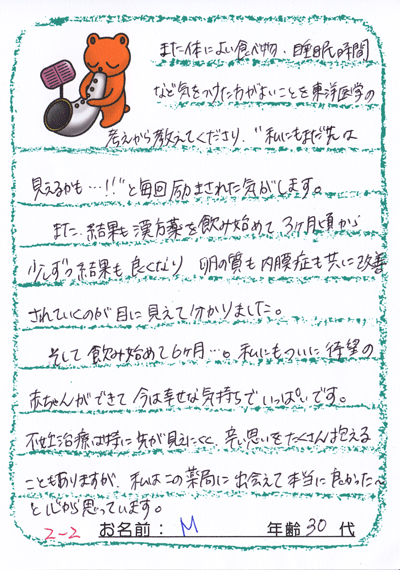 また体によい食べ物、睡眠時間
など気をつけた方がよいことを東洋医学の
考えから教えてくださり、"私にもまだ先は
見えるかも…!!"と毎回励まされた気がします。
また、結果も漢方薬を飲み始めて3ヶ月頃から
少しずつ結果も良くなり、卵の質も内膜症も共に改善
されていくのが目に見えて分かりました。
そして飲み始めて6ヶ月…。私にもついに待望の
赤ちゃんができて今は幸せな気持ちでいっぱいです。
不妊治療は特に先が見えにくく、辛い思いをたくさん抱える
こともありますが、私はこの薬局に出会えて本当に良かった〜
と心から思っています。
2-2 お名前： M 年齢 30 代